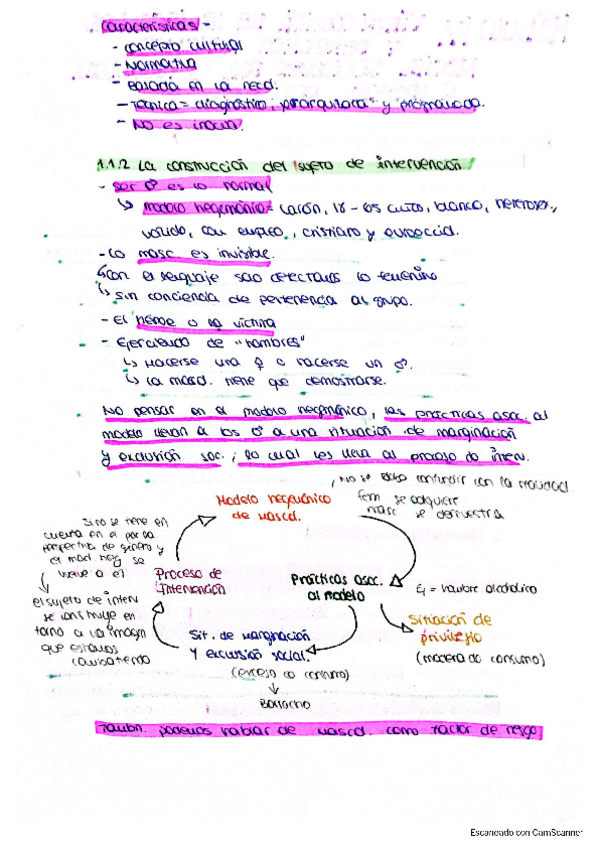 Características -
- concepto cultural
- Normativa
- Basada en la necd.
- Técnica = diagnóstico, y programada.
- No es inocua.
1.1.2 La construcción del sujeto de intervención
- Ser ♂ es lo normal
↳ Modelo hegemónico = varón, 18 - 65 culto, blanco, heterosex.,
válido, con empleo, cristiano y
- Lo masc. es invisible.
↳ con el lenguaje solo detectamos lo femenino
↳ sin conciencia de pertenencia al grupo.
- El héroe o la víctima
- Ejerciendo de "hombres"
↳ Nacerse una ♀ o hacerse un ♂.
↳ La mascl. tiene que demostrarse.
No pensar en el modelo hegemónico, las prácticas asoc. al
modelo llevan a los ♂ a una situación de marginación
y exclusión soc., lo cual les lleva al proceso de interv.
, No se debe confundir con la realidad
Modelo hegemónico
de mascl.
fem se adquiere
masc se demuestra
Si no se tiene en
cuenta en el
perspectiva de género y
el mod heg se
vuelve a él
Proceso de
Intervención
Prácticas asoc.
al modelo
Ej = hombre alcohólico
el sujeto de interv
se construye en
torno a la imagen
que estamos
Situación de
privilegio
(modera do consumo)
Sit. de marginación
y exclusión social.
(exceso do consumo)
↓
Borracho
Tambn. podemos hablar de mascl. como factor de riesgo
Escaneado con CamScanner